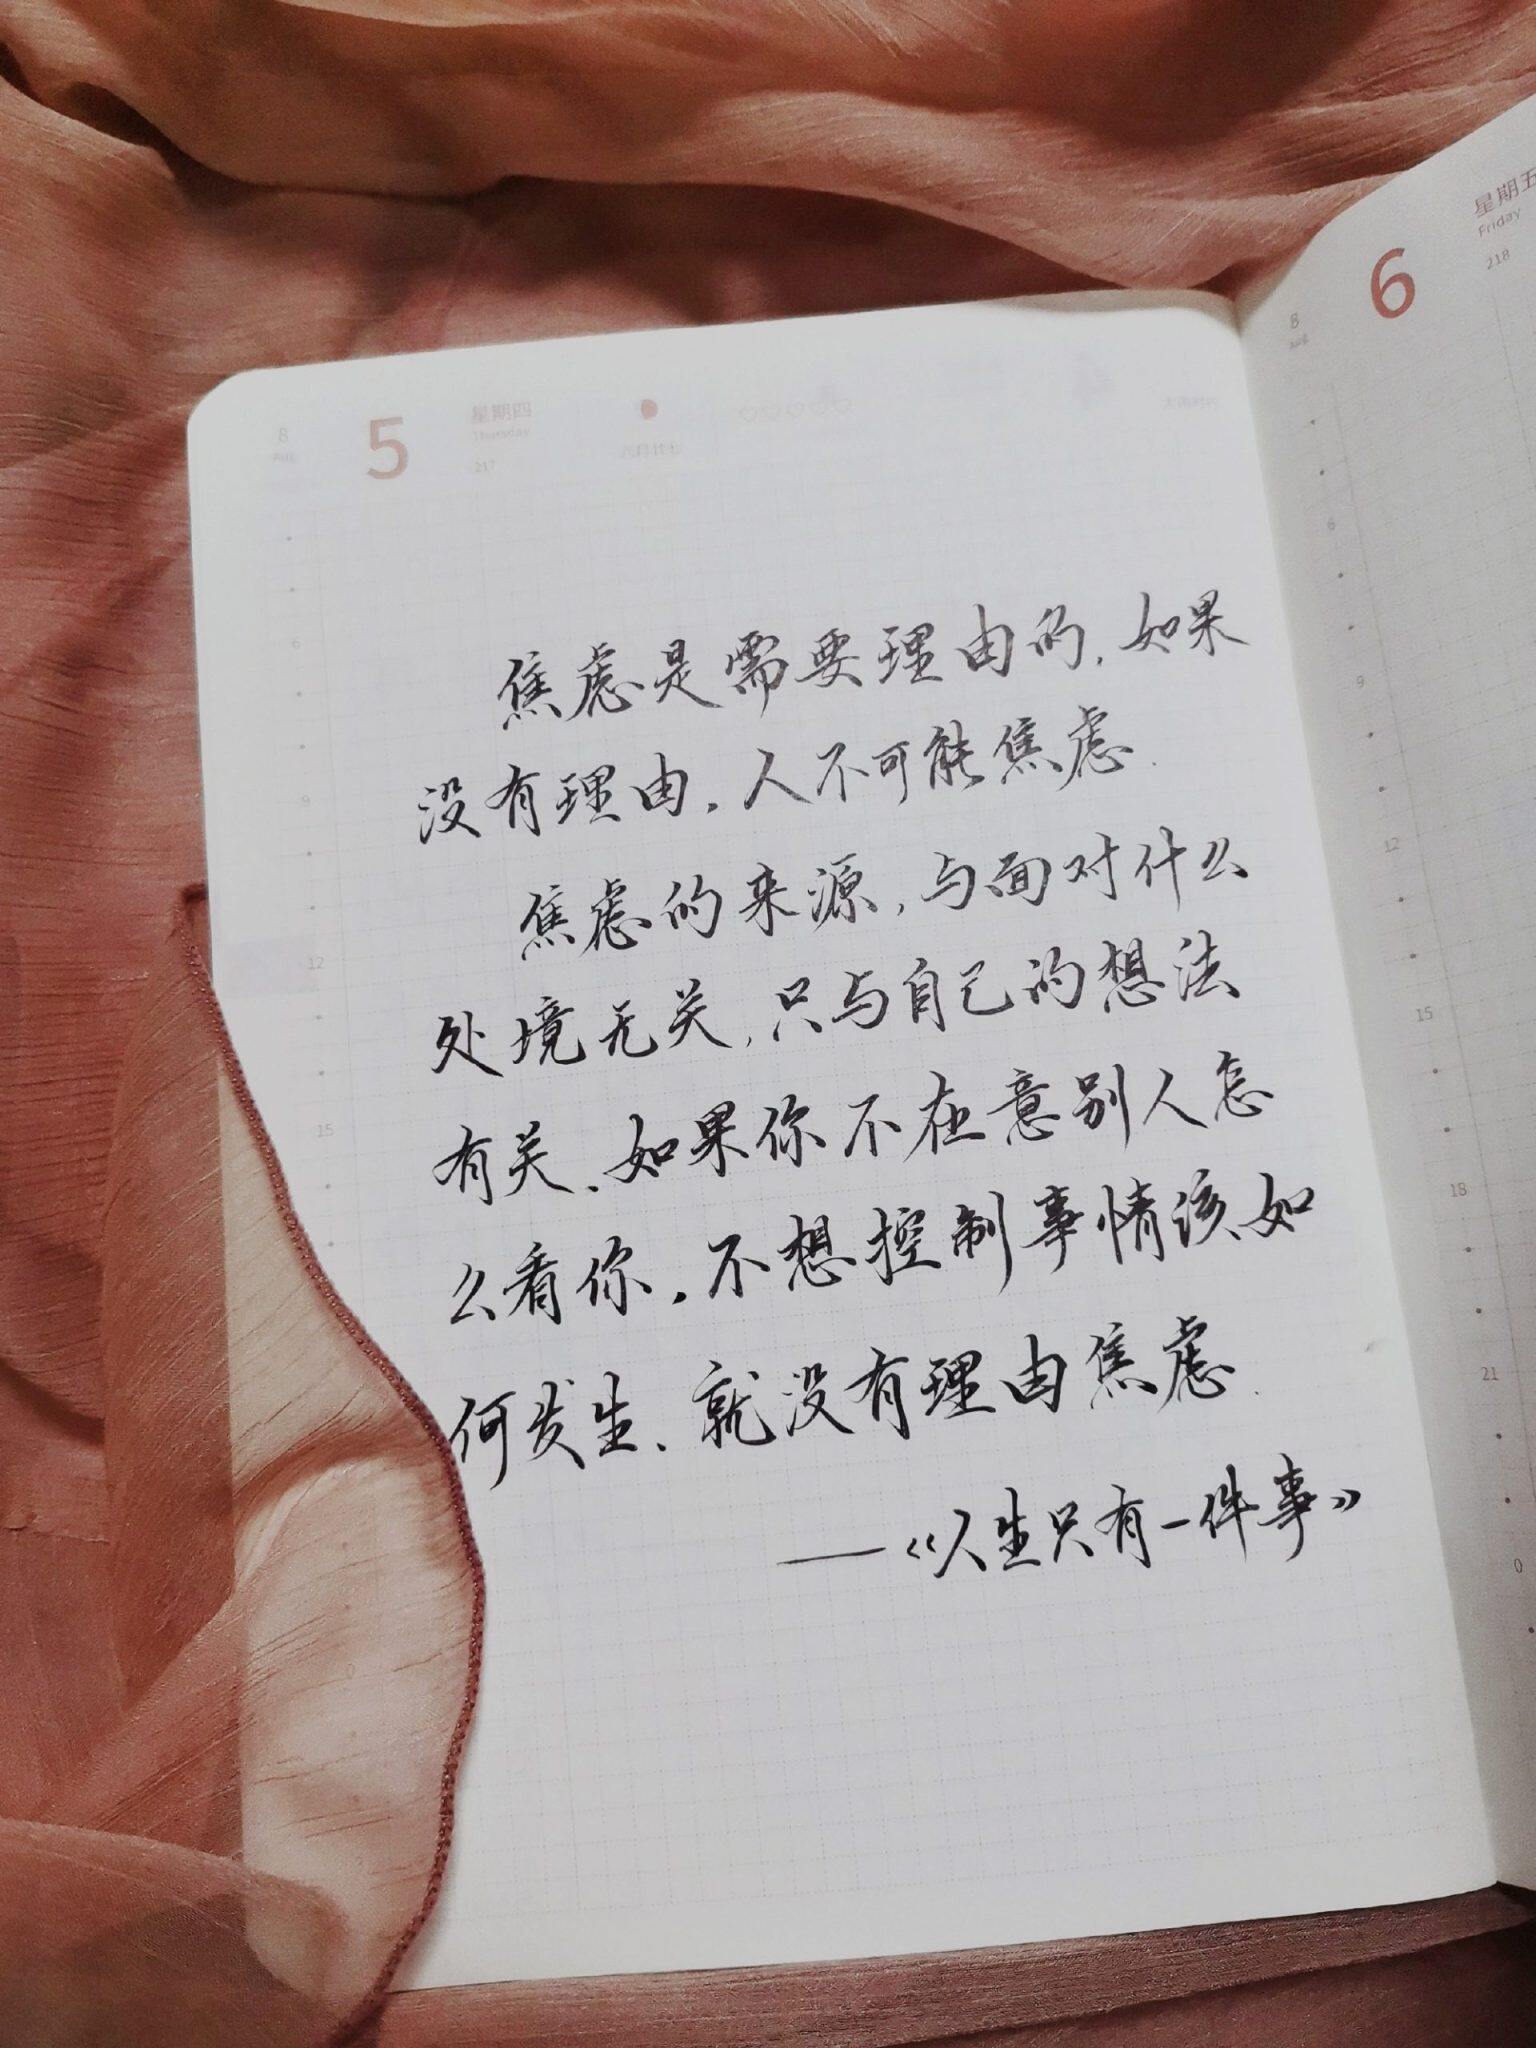 8
5
星期四
Thursday
217
焦虑是需要理由的,如果
没有理由,人不可能焦虑.
焦虑的来源,与面对什么
处境无关,只与自己的想法
有关、如果你不在意别人怎
么看你,不想控制事情该如
何发生、就没有理由焦虑.
——《人生只有一件事》
6
9
12
15
0
8
Aug
6
星期五
Friday
218
6
9
12
15
18
21
0